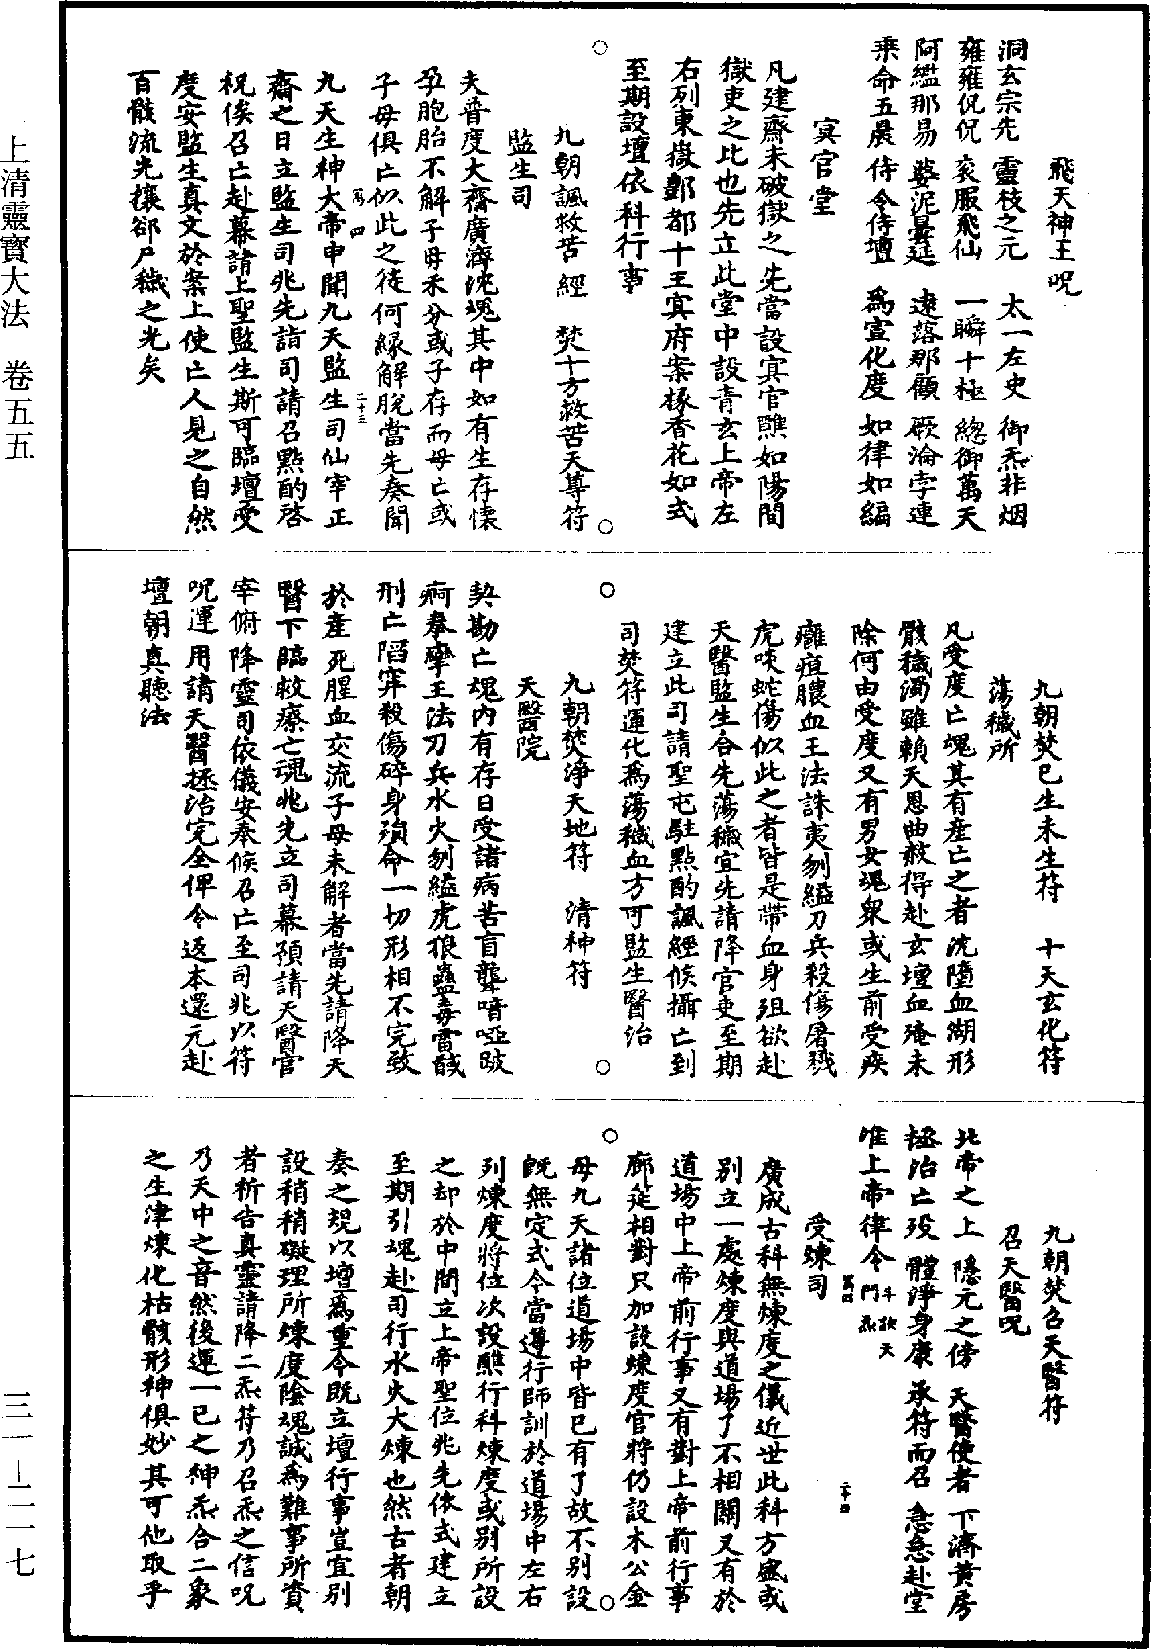 飛天神王呪
洞玄宗先　靈枝之元　太一左史　御炁非烟
雍雍侃侃　衮服飛仙　一瞬十極　總御萬天
阿㰙那易　婆泥曇延　速落那顧　厥淪孛連
乘命五晨　侍令侍壇　為宣化度　如律如編
冥官堂
凡建齋未破獄之先當設冥官醮如陽間
獄吏之比也先立此堂中設青玄上帝左
右列東嶽酆都十王冥府案掾香花如式
至期設壇依科行事
九朝諷救苦經　焚十方救苦天尊符
監生司
夫普度大齋廣濟沈魂其中如有生存懷
孕胞胎不解子母未分或子存而母亡或
子母俱亡似此之徒何緣解脫當先奏聞
九天生神大帝申聞九天監生司仙宰正
齋之日立監生司兆先詣司請召點酌啓
祝俟召亡赴幕請上聖監生斯可臨壇受
度安監生真文於案上使亡人見之自然
百骸流光攘郤尸穢之光矣
九朝焚已生未生符　十天玄化符
蕩穢所
凡受度亡魂其有產亡之者沈墮血湖形
骸穢濁雖賴天恩曲赦得赴玄壇血淹未
除何由受度又有男女魂衆或生前受疾
癰疽膿血王法誅夷刎縊刀兵殺傷屠戮
虎啖蛇傷似此之者皆是帶血身殂欲赴
天醫監生合先蕩穢宜先請降官吏至期
建立此司請聖屯駐點酌諷經候攝亡到
司焚符運化為蕩穢血方可監生醫治
九朝焚淨天地符　清神符
天醫院
契勘亡魂內有存日受諸病苦盲聾喑啞跛
痾拳攣王法刀兵水火刎縊虎狼蠱毒雷醎
刑亡陷穽殺傷碎身殞命一切形相不完致
於產死腥血交流子母未解者當先請降天
醫下臨救療亡魂兆先立司幕預請天醫官
宰俯降靈司依儀安奉候召亡至司兆以符
呪運用請天醫拯治完全俾令返本還元赴
壇朝真聽法
九朝焚召天醫符
召天醫呪
北帝之上　隱元之傍　天醫使者　下濟黃房
拯治亡歿　體淨身康　承符而召　急急赴堂
准上帝律令
受煉司
廣成古科無煉度之儀近世此科方盛或
別立一處煉度與道場了不相關又有於
道場中上帝前行事又有對上帝前行事
廊筵相對只加設煉度官將仍設木公金
母九天諸位道場中皆已有了故不別設
既無定式今當遵行師訓於道場中左右
列煉度將位次設醮行科煉度或別所設
之却於中間立上帝聖位兆先依式建立
至期引魂赴司行水火大煉也然古者朝
奏之規以壇為重今既立壇行事豈宜別
設稍稍礙理所煉度陰魂誠為難事所資
者祈告真靈請降二炁符乃召炁之信呪
乃天中之音然後運一已之神炁合二象
之生津煉化枯骸形神俱妙其可他取乎
上清靈寶大法　卷五五
三一－二一七